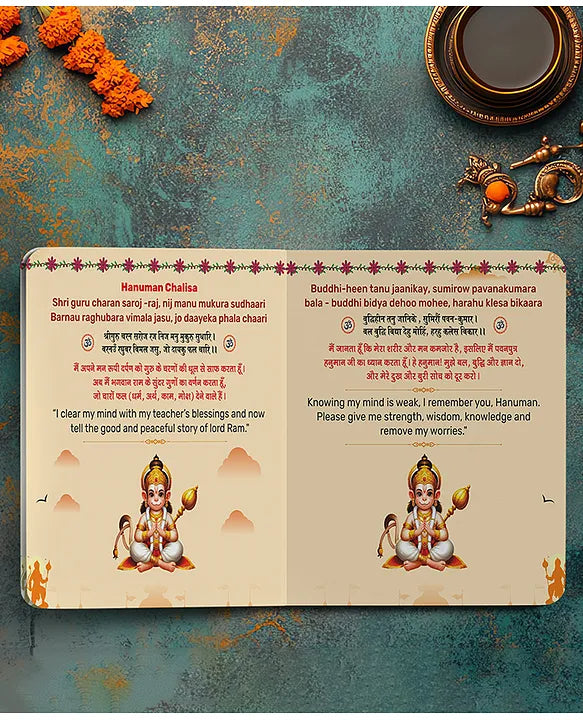 Hanuman Chalisa
Shri guru charan saroj -raj, nij manu mukura sudhaari
Barnau raghubara vimala jasu, jo daayeka phala chaari
ॐ श्रीगुरु चरन सरोज रज निज मनु मुकुरु सुधारि। ॐ
बरनउँ रघुबर बिमल जसु, जो दायकु फल चारि।।
मैं अपने मन रूपी दर्पण को गुरु के चरणों की धूल से साफ करता हूँ।
अब मैं भगवान राम के सुंदर गुणों का वर्णन करता हूँ,
जो चारों फल (धर्म, अर्थ, काम, मोक्ष) देने वाले हैं।
“I clear my mind with my teacher’s blessings and now
tell the good and peaceful story of lord Ram.”
Buddhi-heen tanu jaanikay, sumirow pavanakumara
bala - buddhi bidya dehoo mohee, harahu klesa bikaara
ॐ बुद्धिहीन तनु जानिके, सुमिरौं पवन-कुमार। ॐ
बल बुद्धि बिद्या देहु मोहिं, हरहु कलेस विकार।।
मैं जानता हूँ कि मेरा शरीर और मन कमजोर है, इसलिए मैं पवनपुत्र
हनुमान जी का ध्यान करता हूँ। हे हनुमान! मुझे बल, बुद्धि और ज्ञान दो,
और मेरे दुख और बुरी सोच को दूर करो।
Knowing my mind is weak, I remember you, Hanuman.
Please give me strength, wisdom, knowledge and
remove my worries.”